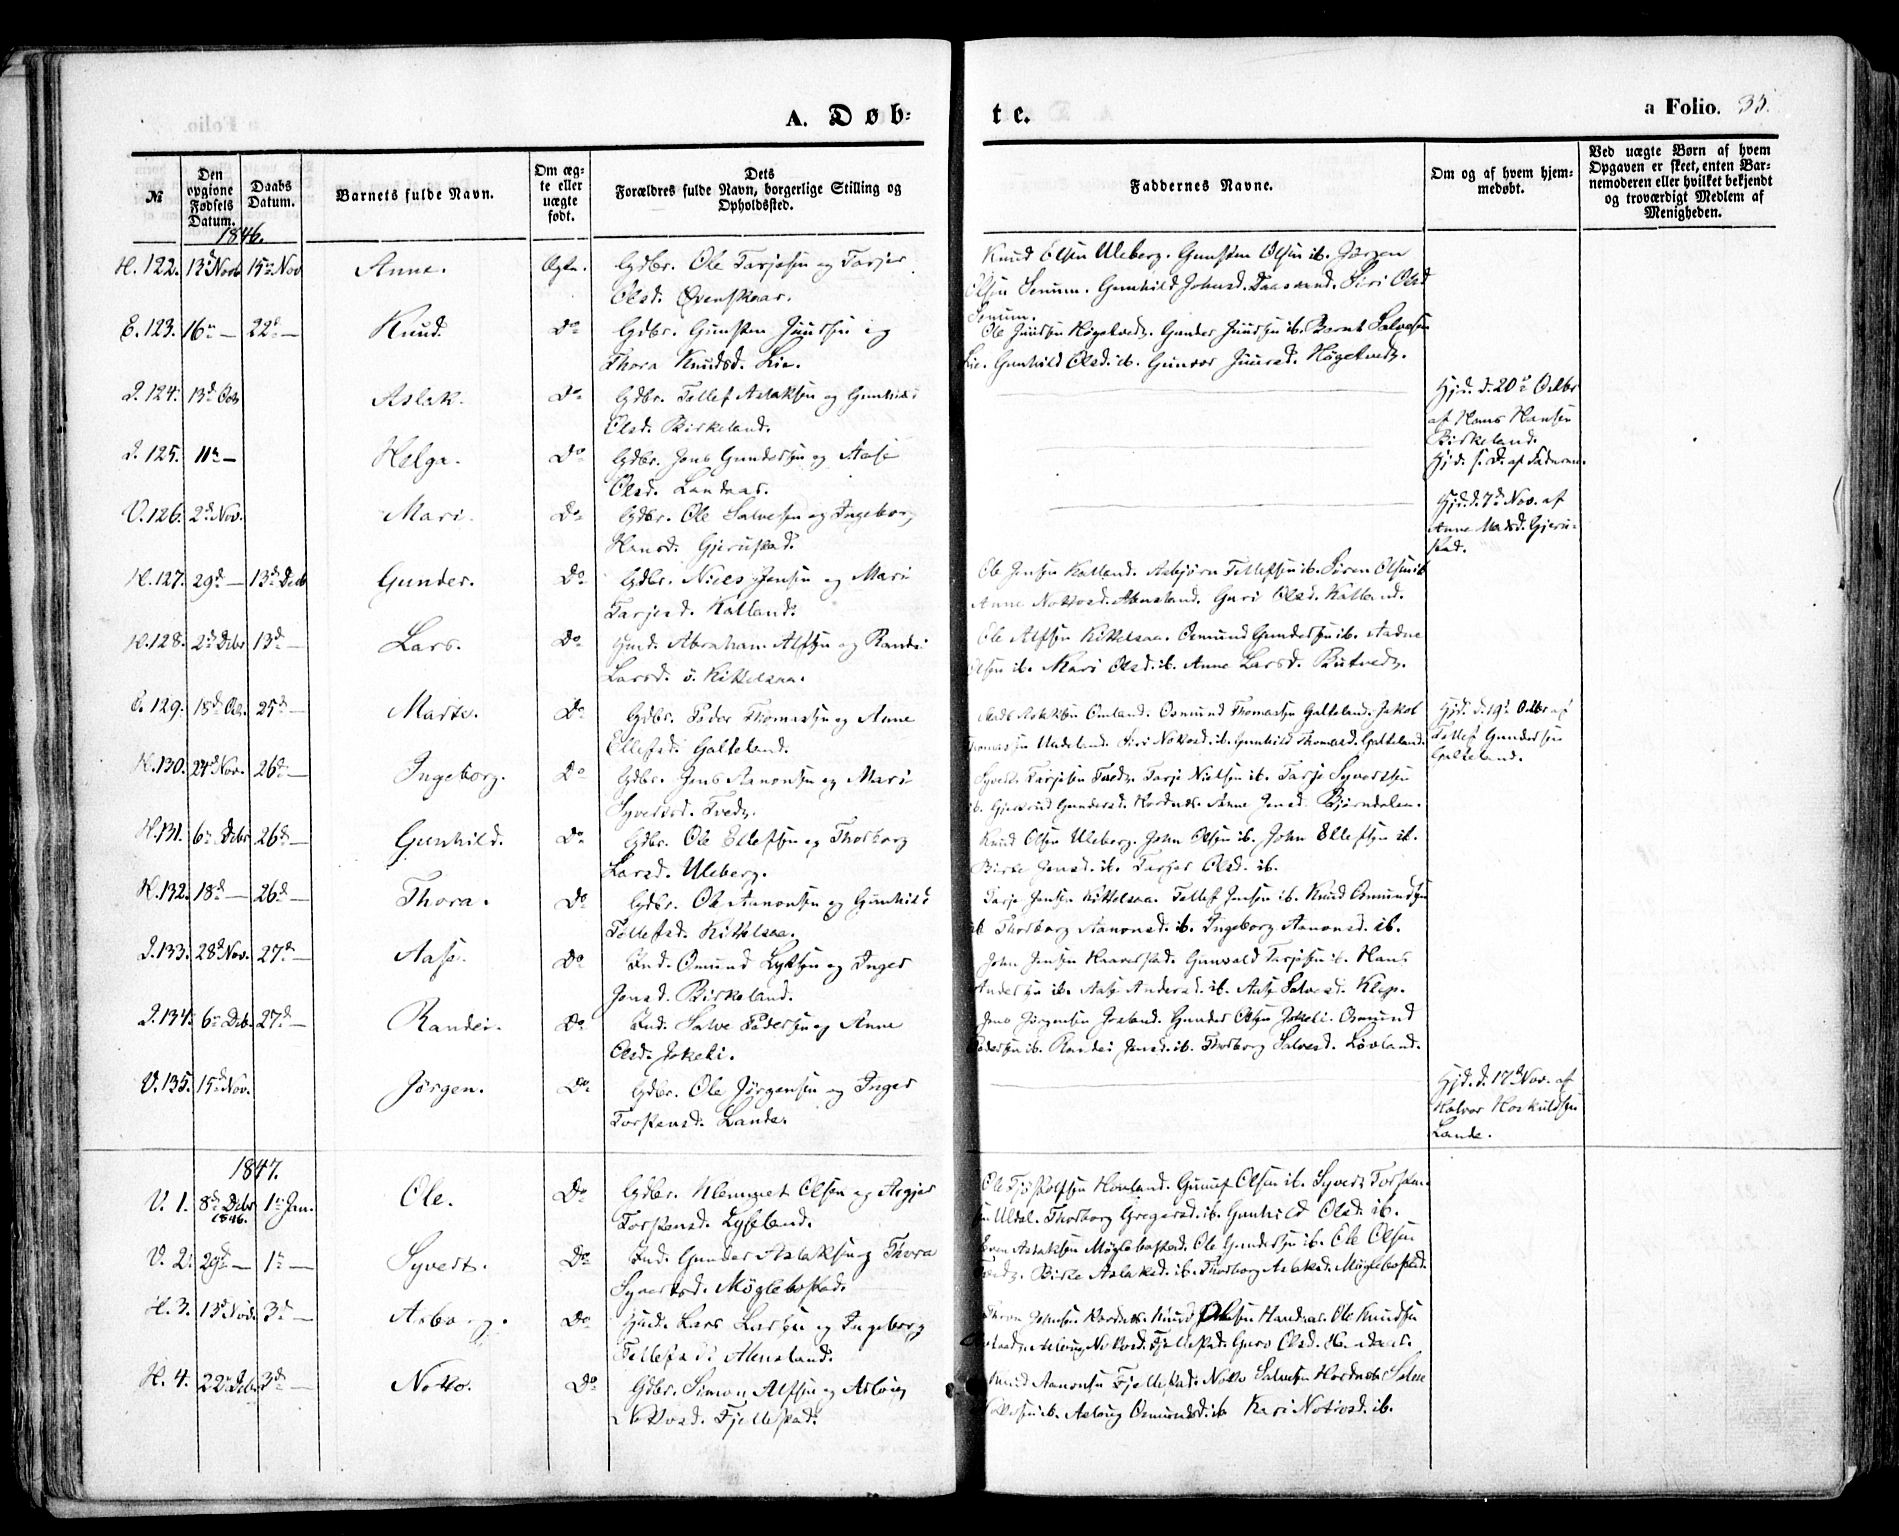 A. Døb-
te.
a Folio. 35.
№
Den opgivne Fødsels Datum.
Daabs Datum.
Barnets fulde Navn.
Om ægte eller uægte født.
Dets Forældres fulde Navn, borgerlige Stilling og Opholdssted.
Faddernes Navne.
Om og af hvem hjemmedøbt.
Ved uægte Børn af hvem Opgaven er skeet, enten Barnemoderen eller hvilket bekjendt og troværdigt Medlem af Menigheden.
1846.
H. 122. 13d Novb 15de Nov Anne. Ægte. Gdbr. Ole Tarjesen og Tarjer
Olsd. Øvenskaar.
Knud Olsen Uleberg. Gunsten Olsen ib. Jørgen
Olsen Senum. Gunhild Johnsd. Siri Olsd
Senum.
E. 123. 16de — 22d — Knud Do Gdbr. Gunsten Juulsen og
Thora Knudsd. Lie.
Ole Juulsen Høgetvedt. Gunder Juulsen ib. Bernt Salvesen
Lie. Gunhild Olsd. ib. Gunvor Juulsd. Høgetvedt.
I. 124. 13d Octb Aslak. Do Gdbr. Tellef Aslaksen og Gunhild
Olsd. Birkeland.
Hjd. d. 20d Octbr
af Hans Hansen
Birkeland.
I. 125. 11te — Helga. Do Gdbr. Jens Gundersen og Aase
Olsd. Landaas.
Hjd. s. D. af Faderen.
V. 126. 2d Nov. Mari. Do Gdbr. Ole Salvesen og Ingeborg
Hansd. Gjerustad.
Hjd. d. 7d Nov. af
Anne Madsd. Gjeru-
stad.
H. 127. 29d — 13d Decb Gunder. Do Gdbr. Niels Jensen og Mari
Tarjesd. Katland.
Ole Jensen Katland. Asbjørn Tellefsen ib. Søren Olsen ib
Anne Nottosd. Abusland. Guri Olsd. Katland.
H. 128. 2d Decbr 13d — Lars. Do Gmd. Abraham Alfsen og Randei
Larsd. ø. Kittelsaa.
Ole Alfsen Kittelsaa. Osmund Gundersen ib. Aadne
Olsen ib. Mari Olsd. ib. Anne Larsd. Butvedt.
E. 129. 18d Oct. 25d — Marte. Do Gdbr. Peder Thomassen og Anne
Ellefsd. Galteland.
Mads Aslaksen Omland. Osmund Thomassen Galteland. Jakob
Thomassen Uldeland. Siri Nottosd. ib. Gunhild Thomasd. Galteland.
Hjd. d. 19d Octbr af
Tellef Gundersen
Galteland.
H. 130. 24d Nov. 26d — Ingeborg. Do Gdbr. Jens Aanonsen og Mari
Syversd. Tvedt.
Syvert Tarjesen Tvedt. Tarje Nielsen ib. Tarje Syvertsen
ib. Gjertrud Gundersd. Hordnes. Anne Jensd. Bjørndalen.
H. 131. 6te Decbr 26d — Gunhild. Do Gdbr. Ole Ellefsen og Thorborg
Larsd. Uleberg.
Knud Olsen Uleberg. John Olsen ib. John Ellefsen ib.
Birte Jensd. ib. Tarjer Olsd. ib.
H. 132. 18d — 26d — Thora. Do Gdbr. Ole Aanonsen og Gunhild
Tellefsd. Kittelsaa.
Tarje Jensen Kittelsaa. Tellef Jensen ib. Knud Osmundsen
ib. Thorborg Aanonsd. ib. Ingeborg Aanonsd. ib.
I. 133. 28d Nov. 27d — Aase. Do Ind. Omund Lyktsen og Inger
Jensd. Birkeland.
John Jensen Haverstad. Gunvald Tarjesen ib. Hans
Andersen ib. Aase Andersd. ib. Aase Salvesd. Klep.
I. 134. 6te Decb. 27d — Randei. Do Ind. Salve Pedersen og Anne
Olsd. Jokeli.
Jens Jørgensen Josland. Gunder Olsen Jokeli. Osmund
Pedersen ib. Randei Jensd. ib. Thorborg Salvesd. Løvland.
V. 135. 15d Nov. Jørgen. Do Gdbr. Ole Jørgensen og Inger
Torstensd. Lande.
Hjd. d. 17d Nov. af
Halvor Hoskuldsen
Lande.
1847.
V. 1. 8d Decbr 1846. 1te Jan. Ole. Do Gdbr. Klemmet Olsen og Asgjer
Torstensd. Lyseland.
Ole Tjøstolfsen Hovland. Gunuf Olsen ib. Syvert Torsten-
sen Uldal. Thorborg Gregersd. ib. Gunhild Olsd. ib.
V. 2. 29d — 1te — Syvert. Do Ind. Gunder Aslaksen og Thora
Syvertsd. Møglebostad.
Even Aslaksen Møglebostad. Ole Gundersen ib. Ole Olsen
Tvedt. Birte Aslaksd. ib. Thorborg Aslaksd. Møglebostad.
H. 3. 13d Nov. 3d — Asborg. Do Gmd. Lars Larsen og Ingeborg
Tellefsd. Abusland.
Johnsen Hordnes. Knud Olsen Handaas. Ole Knudsen
Aslaug Nottosd. Fjellestad. Guro Olsd. Handaas.
H. 4. 22d Decbr 3d — Notto. Do Gdbr. Simon Alfsen og Aslaug
Nottosd. Fjellestad.
Knud Aanonsen Fjellestad. Notto Salvesen Hordnes. Salve
Nottosen ib. Aslaug Osmundsd. ib. Kari Nottosd. ib.